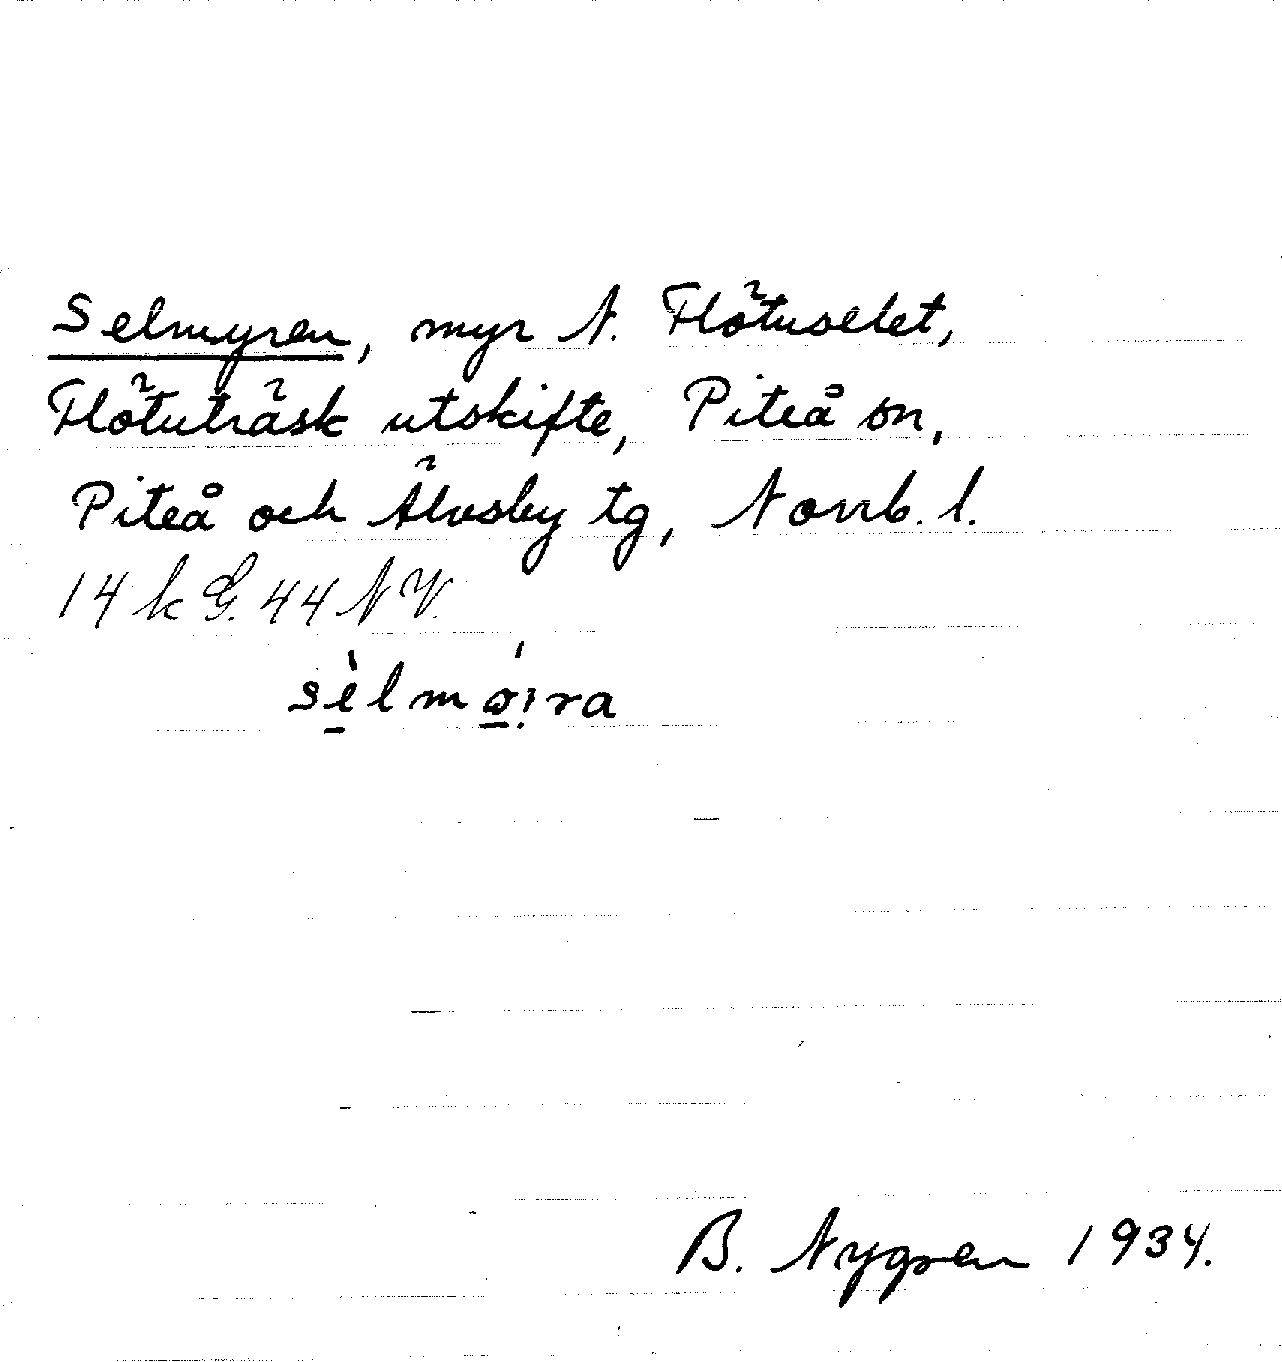 Selmyren, myr N. Flötuselet,
Flötuträsk utskifte, Piteå sn,
Piteå och Älvsby tg, Norrb. l.
14 k G. 44 N V.
sèlmø̀i̯ra
B. Nygren 1934.